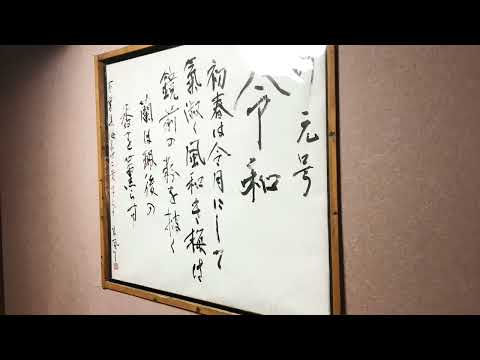 元号
令和
初春は令月にして
氣淑く風和ぎ梅は
鏡前の粉を披く
蘭は珮後の
香を薫らす